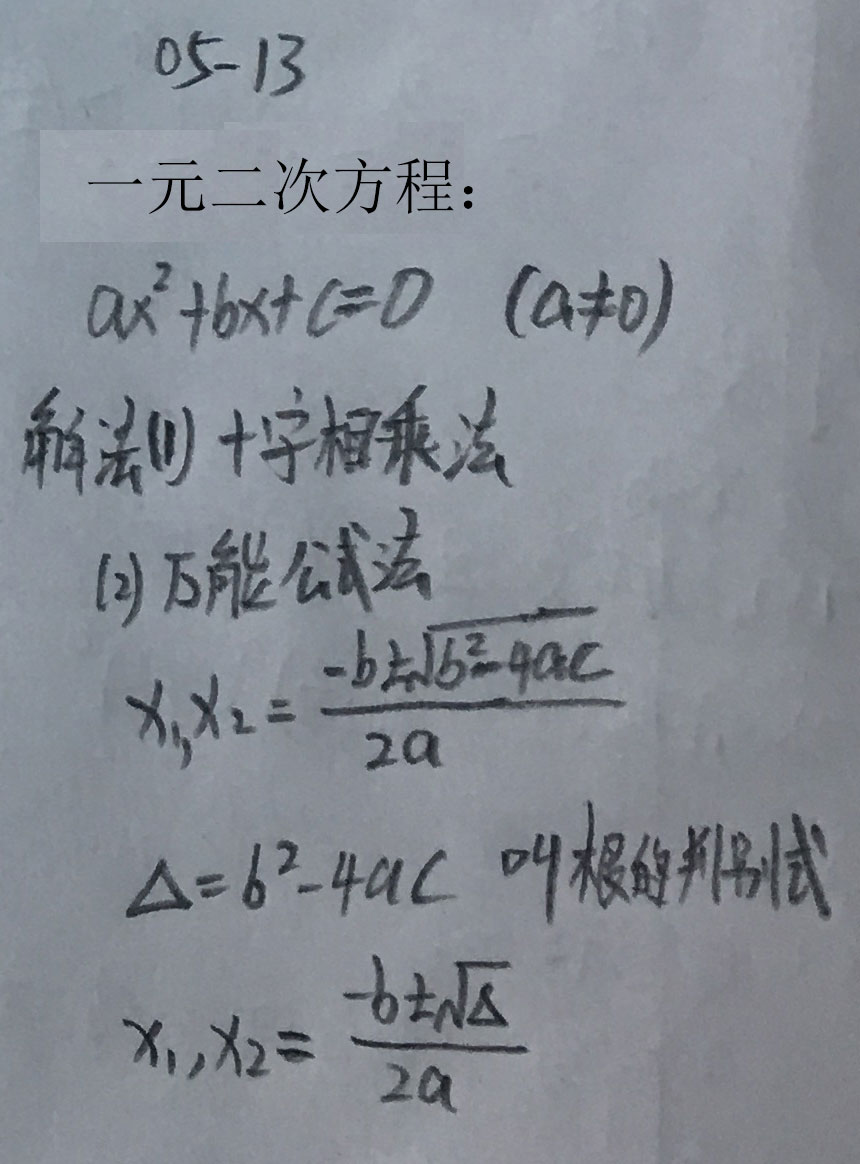 05-13
一元二次方程：
ax²+bx+c=0 (a≠0)
解法(1) 十字相乘法
(2) 万能公式法
x₁,x₂ = (-b±√(b²-4ac))/(2a)
Δ=b²-4ac 叫根的判别式
x₁,x₂ = (-b±√Δ)/(2a)